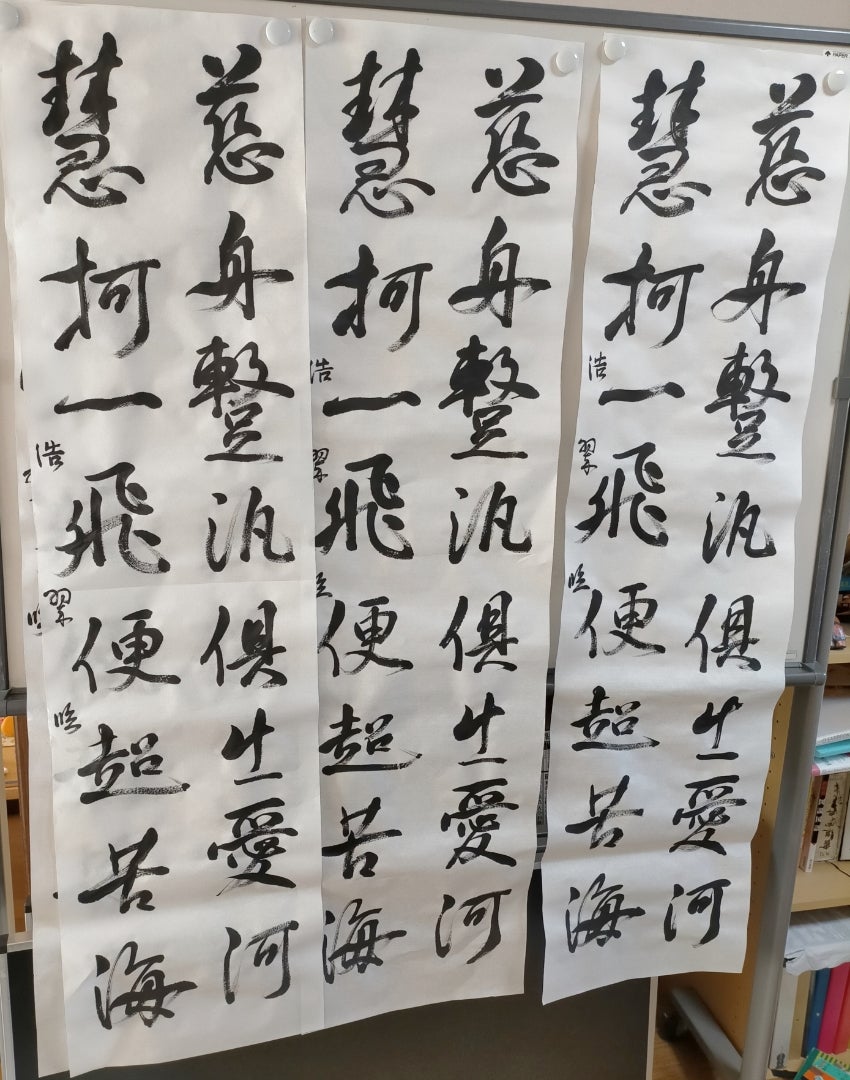 慈舟蹔汎俱生愛河
慧柯一飛便超苦海
浩翠臨
慈舟蹔汎俱生愛河
慧柯一飛便超苦海
浩翠臨
慈舟蹔汎俱生愛河
慧柯一飛便超苦海
浩翠臨